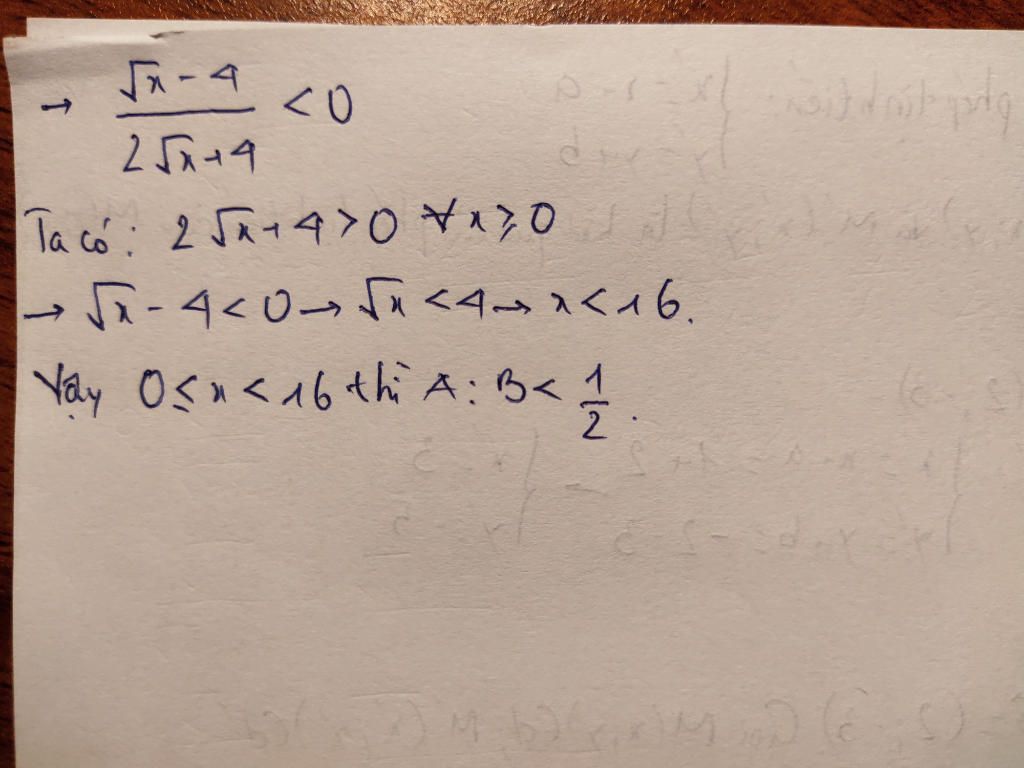 → (√x - 4)/(2√x + 4) < 0
Ta có: 2√x + 4 > 0 ∀x ≥ 0
→ √x - 4 < 0 → √x < 4 → x < 16.
Vậy 0 ≤ x < 16 thì A : B < 1/2.